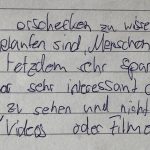 orscheeken zu wisse
gelaufen sind, Menschen
tetzdem sehr span
as sehr interessant d
zu sehen und nicht
Videos oder Filme